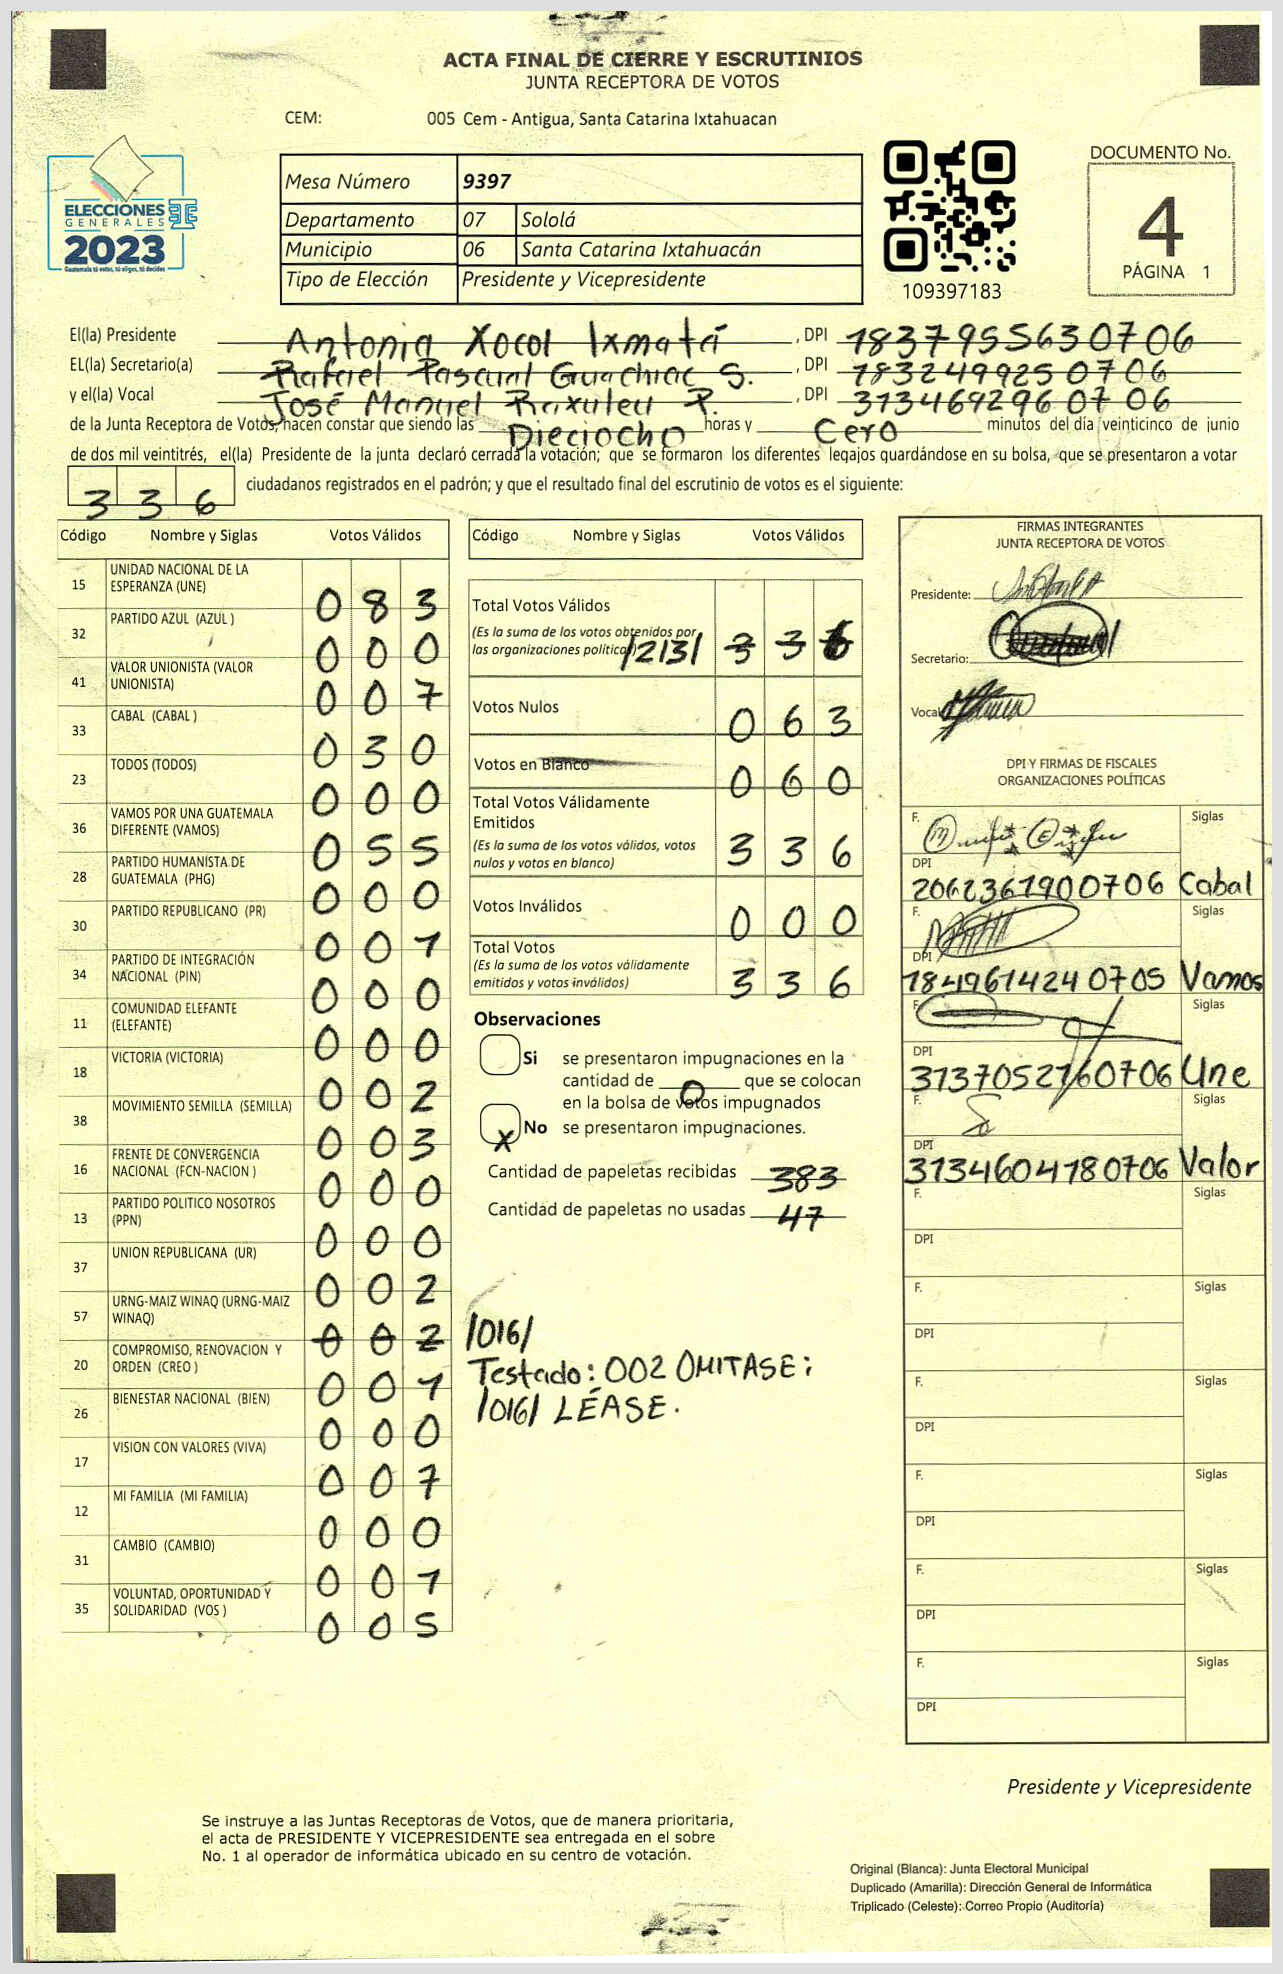 ACTA FINAL DE CIERRE Y ESCRUTINIOS
JUNTA RECEPTORA DE VOTOS
CEM: 005 Cem - Antigua, Santa Catarina Ixtahuacan
ELECCIONES
GENERALES
2023
Guatemala tú votas, tú eliges, tú decides
Mesa Número 9397
Departamento 07 Sololá
Municipio 06 Santa Catarina Ixtahuacán
Tipo de Elección Presidente y Vicepresidente
109397183
DOCUMENTO No.
4
PÁGINA 1
El(la) Presidente Antonia Xocol Ixmatá, DPI 1837955630706
EL(la) Secretario(a) Rafael Pascual Guachiac S., DPI 1832499250706
y el(la) Vocal José Manuel Raxuleu P., DPI 3134692960706
de la Junta Receptora de Votos, hacen constar que siendo las Dieciocho horas y Cero minutos del día veinticinco de junio
de dos mil veintitrés, el(la) Presidente de la junta declaró cerrada la votación; que se formaron los diferentes legajos guardándose en su bolsa, que se presentaron a votar
336 ciudadanos registrados en el padrón; y que el resultado final del escrutinio de votos es el siguiente:
Código Nombre y Siglas Votos Válidos
15 UNIDAD NACIONAL DE LA ESPERANZA (UNE) 083
32 PARTIDO AZUL (AZUL ) 000
41 VALOR UNIONISTA (VALOR UNIONISTA) 007
33 CABAL (CABAL ) 030
23 TODOS (TODOS) 000
36 VAMOS POR UNA GUATEMALA DIFERENTE (VAMOS) 055
28 PARTIDO HUMANISTA DE GUATEMALA (PHG) 000
30 PARTIDO REPUBLICANO (PR) 001
34 PARTIDO DE INTEGRACIÓN NACIONAL (PIN) 000
11 COMUNIDAD ELEFANTE (ELEFANTE) 000
18 VICTORIA (VICTORIA) 002
38 MOVIMIENTO SEMILLA (SEMILLA) 003
16 FRENTE DE CONVERGENCIA NACIONAL (FCN-NACION ) 000
13 PARTIDO POLITICO NOSOTROS (PPN) 000
37 UNION REPUBLICANA (UR) 002
57 URNG-MAIZ WINAQ (URNG-MAIZ WINAQ) 002 /016/
20 COMPROMISO, RENOVACION Y ORDEN (CREO ) 001
26 BIENESTAR NACIONAL (BIEN) 000
17 VISION CON VALORES (VIVA) 007
12 MI FAMILIA (MI FAMILIA) 000
31 CAMBIO (CAMBIO) 001
35 VOLUNTAD, OPORTUNIDAD Y SOLIDARIDAD (VOS ) 005
Código Nombre y Siglas Votos Válidos
Total Votos Válidos
(Es la suma de los votos obtenidos por
las organizaciones políticas) /213/ 336
Votos Nulos 063
Votos en Blanco 060
Total Votos Válidamente
Emitidos
(Es la suma de los votos válidos, votos
nulos y votos en blanco) 336
Votos Inválidos 000
Total Votos
(Es la suma de los votos válidamente
emitidos y votos inválidos) 336
Observaciones
Si se presentaron impugnaciones en la
cantidad de 0 que se colocan
en la bolsa de votos impugnados
X No se presentaron impugnaciones.
Cantidad de papeletas recibidas 383
Cantidad de papeletas no usadas 47
Testado: 002 OMITASE;
/016/ LÉASE.
FIRMAS INTEGRANTES
JUNTA RECEPTORA DE VOTOS
Presidente:
Secretario:
Vocal
DPI Y FIRMAS DE FISCALES
ORGANIZACIONES POLÍTICAS
F. Siglas
DPI
2062361900706 Cabal
F. Siglas
DPI
1849614240705 Vamos
F. Siglas
DPI
3137052160706 Une
F. Siglas
DPI
3134604180706 Valor
F. Siglas
DPI
F. Siglas
DPI
F. Siglas
DPI
F. Siglas
DPI
F. Siglas
DPI
F. Siglas
DPI
Presidente y Vicepresidente
Se instruye a las Juntas Receptoras de Votos, que de manera prioritaria,
el acta de PRESIDENTE Y VICEPRESIDENTE sea entregada en el sobre
No. 1 al operador de informática ubicado en su centro de votación.
Original (Blanca): Junta Electoral Municipal
Duplicado (Amarilla): Dirección General de Informática
Triplicado (Celeste): Correo Propio (Auditoría)